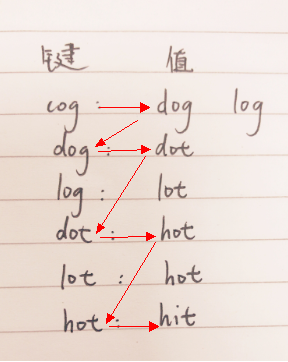 键 值
cog : dog log
dog : dot
log : lot
dot : hot
lot : hot
hot : hit